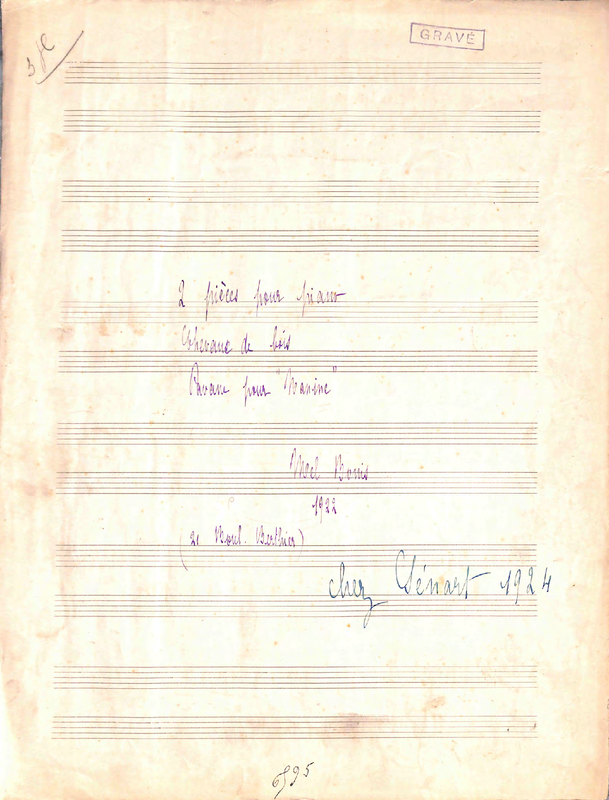 GRAVÉ
2 pièces pour piano
Chevaux de bois
Pavane pour "Nanine"
Mel Bonis
1922
(21 Boul. Berthier)
chez Sénart 1924
6595